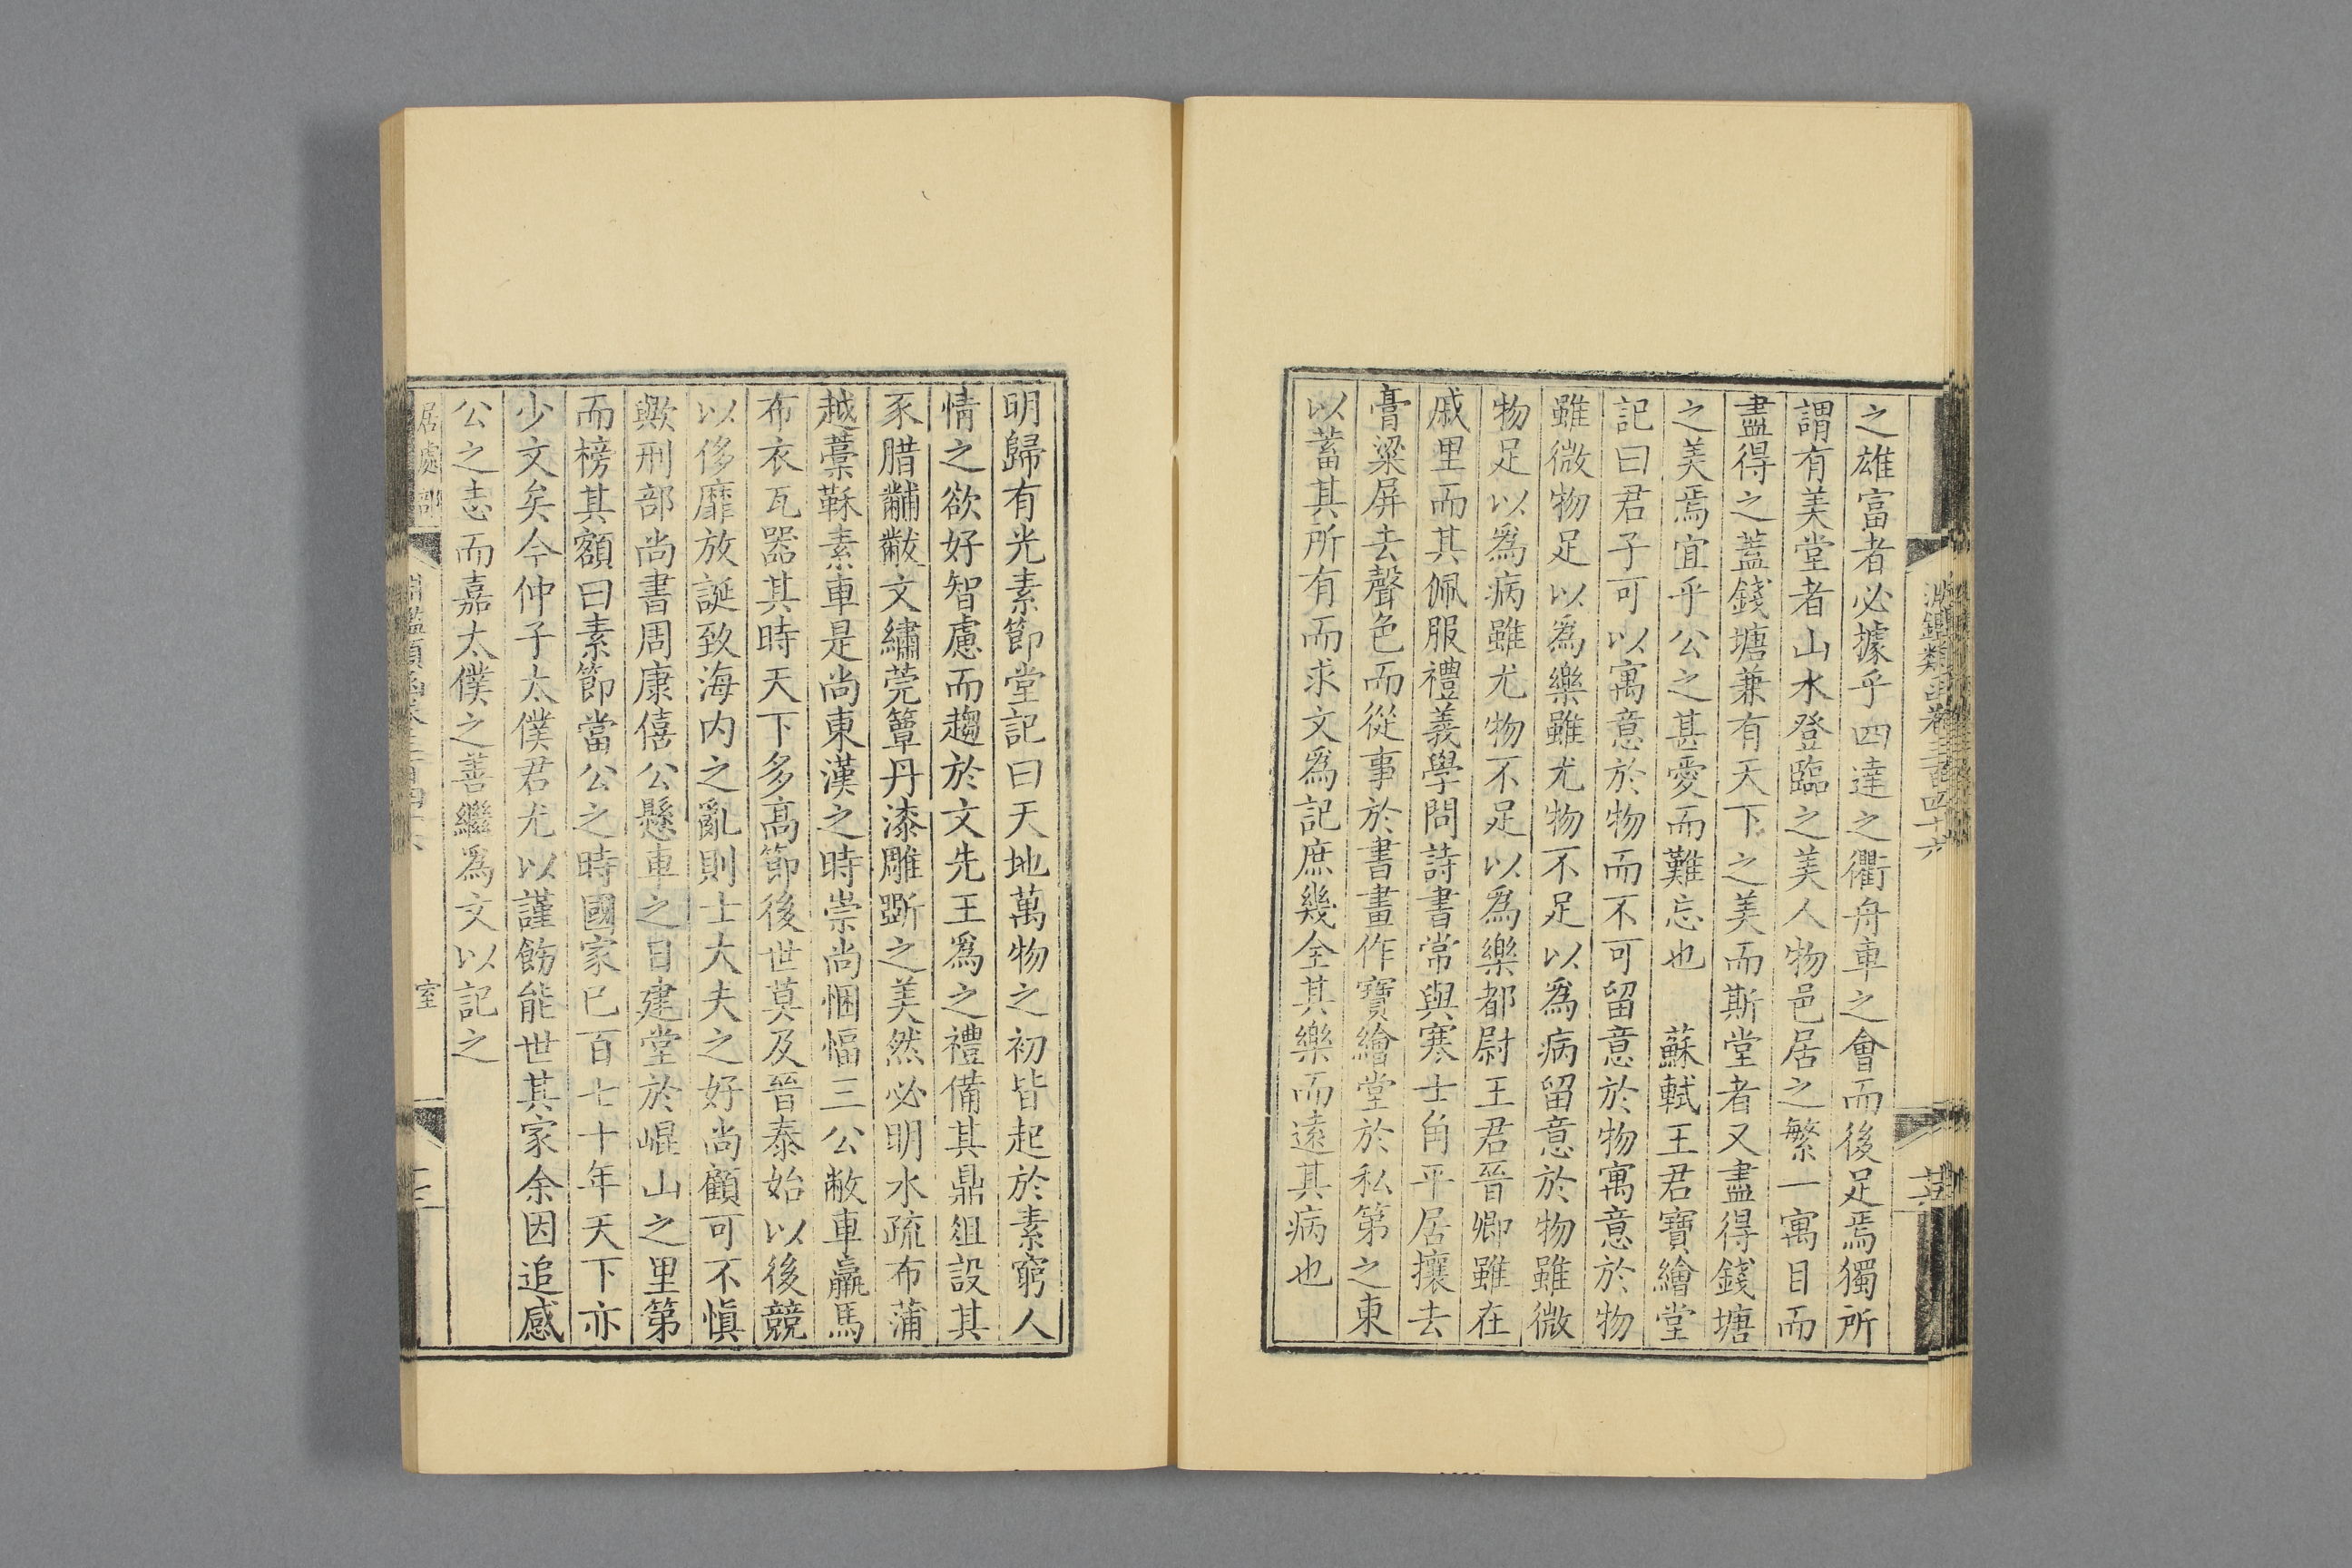 淵鑑類函卷三百四十六
之雄富者必據乎四達之衢舟車之會而後足焉獨所
謂有美堂者山水登臨之美人物邑居之繁一寓目而
盡得之蓋錢塘兼有天下之美而斯堂者又盡得錢塘
之美焉宜乎公之甚愛而難忘也　蘇軾王君寶繪堂
記曰君子可以寓意於物而不可留意於物寓意於物
雖微物足以爲樂雖尤物不足以爲病留意於物雖微
物足以爲病雖尤物不足以爲樂都尉王君晉卿雖在
戚里而其佩服禮義學問詩書常與寒士角平居攘去
膏粱屏去聲色而從事於書畫作寶繪堂於私第之東
以蓄其所有而求文爲記庶幾全其樂而遠其病也
明歸有光素節堂記曰天地萬物之初皆起於素窮人
情之欲好智慮而趨於文先王爲之禮備其鼎俎設其
豕腊黼黻文繡莞簟丹漆雕斲之美然必明水疏布蒲
越藁鞂素車是尚東漢之時崇尚悃愊三公敝車羸馬
布衣瓦器其時天下多高節後世莫及晉泰始以後競
以侈靡放誕致海内之亂則士大夫之好尚顧可不愼
歟刑部尚書周康僖公懸車之日建堂於崐山之里第
而榜其額曰素節當公之時國家已百七十年天下亦
少文矣今仲子太僕君尤以謹飭能世其家余因追感
公之志而嘉太僕之善繼爲文以記之
居處部
室